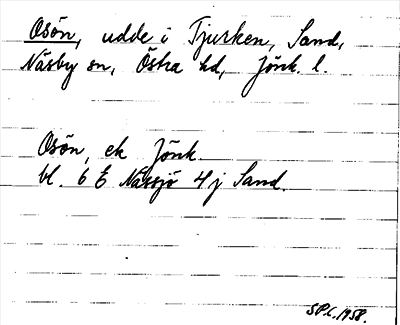 Osön, udde i Tjurken, Sand,
Näsby sn, Östra hd, Jönk. l.
Osön, ek Jönk.
bl. 6 E Nässjö 4 j Sand.
SPL. 1958.